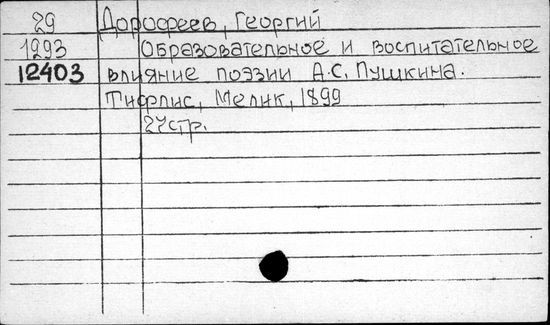 29 Дорофеев, Георгий
1293 Образовательное и воспитательное
12403 влияние поэзии А.С. Пушкина.
Тифлис, Мелик, 1899
27 стр.